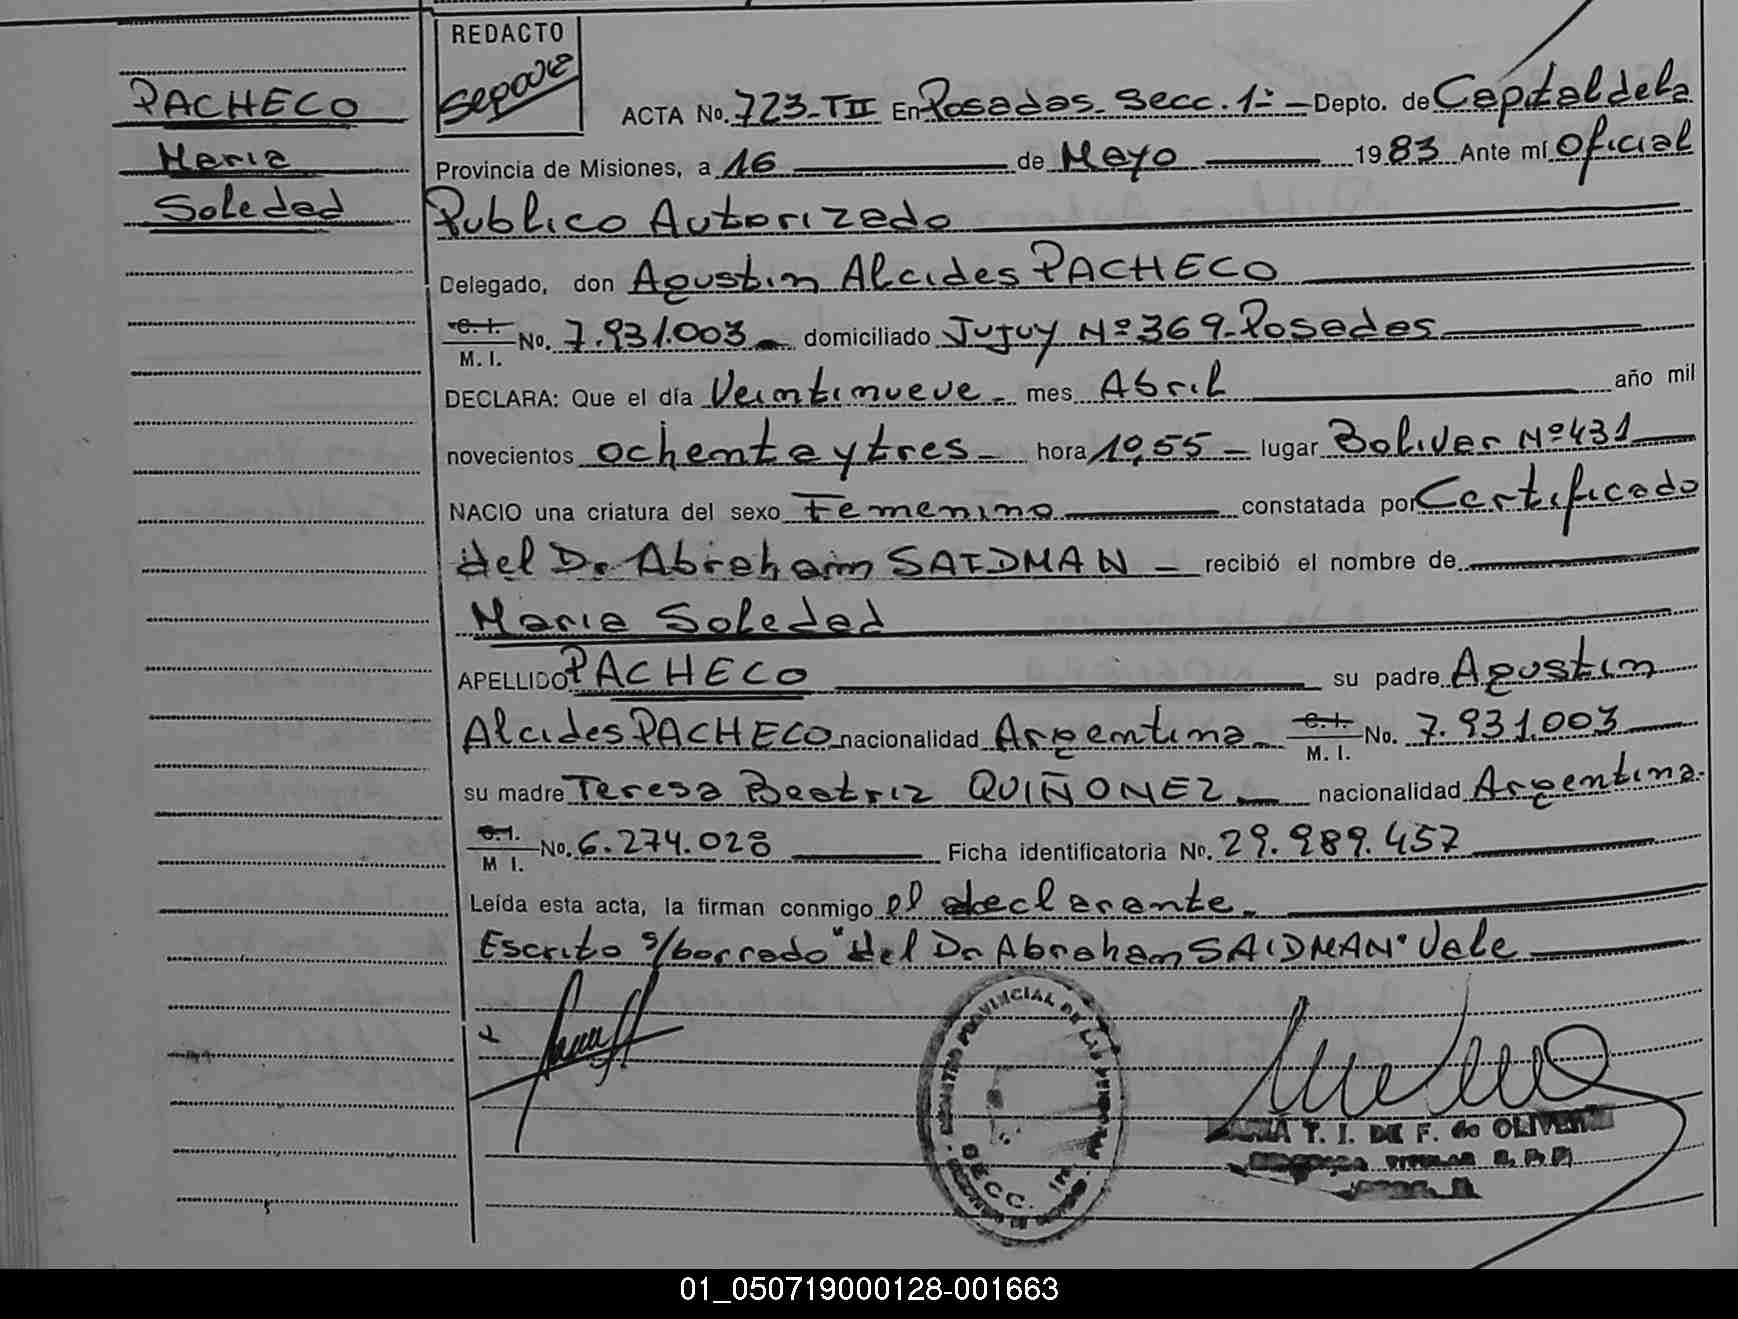 PACHECO
Maria
Soledad
REDACTO
ACTA No. 723-TII En Posadas Secc. 1ª Depto. de Capital de la
Provincia de Misiones, a 16 de Mayo 1983 Ante mí Oficial
Publico Autorizado
Delegado, don Agustin Alcides PACHECO
C. I.
M. I. No. 7.931.003 domiciliado Jujuy Nº 369-Posadas
DECLARA: Que el día Veintinueve mes Abril año mil
novecientos ochenta y tres hora 10,55 lugar Bolivar Nº 431
NACIO una criatura del sexo Femenino constatada por Certificado
del Dr Abraham SAIDMAN recibió el nombre de
Maria Soledad
APELLIDO PACHECO su padre Agustin
Alcides PACHECO nacionalidad Argentina C. I. M. I. No. 7.931.003
su madre Teresa Beatriz QUIÑONEZ nacionalidad Argentina
C. I.
M I. No. 6.274.028 Ficha identificatoria No. 29.989.457
Leída esta acta, la firman conmigo el declarante
Escrito s/borrado "del Dr Abraham SAIDMAN" Vale
REGISTRO PROVINCIAL DE LAS PERSONAS
SECC. 1ra
T. I. DE F. de OLIVERA
TITULAR R. P. P.
01_050719000128-001663